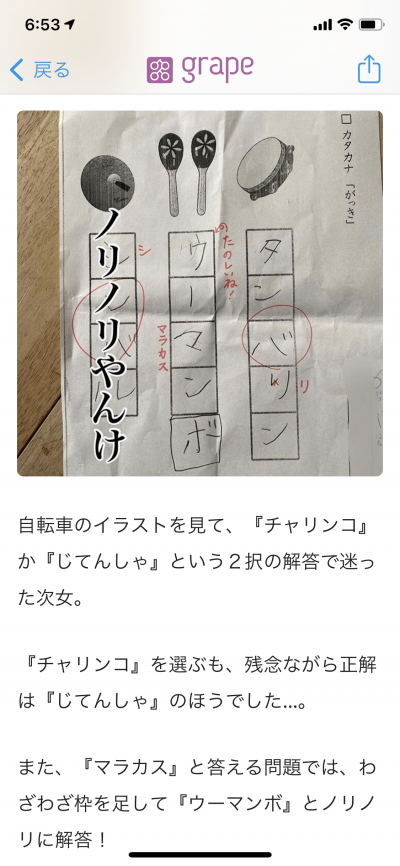 6:53
戻る
grape
□ カタカナ 「がっき」
タンバリン
リ
のたのしいね!
ウーマンボ
マラカス
シ
ノリノリやんけ
自転車のイラストを見て、『チャリンコ』
か『じてんしゃ』という２択の解答で迷っ
た次女。
『チャリンコ』を選ぶも、残念ながら正解
は『じてんしゃ』のほうでした…。
また、『マラカス』と答える問題では、わ
ざわざ枠を足して『ウーマンボ』とノリノ
リに解答！